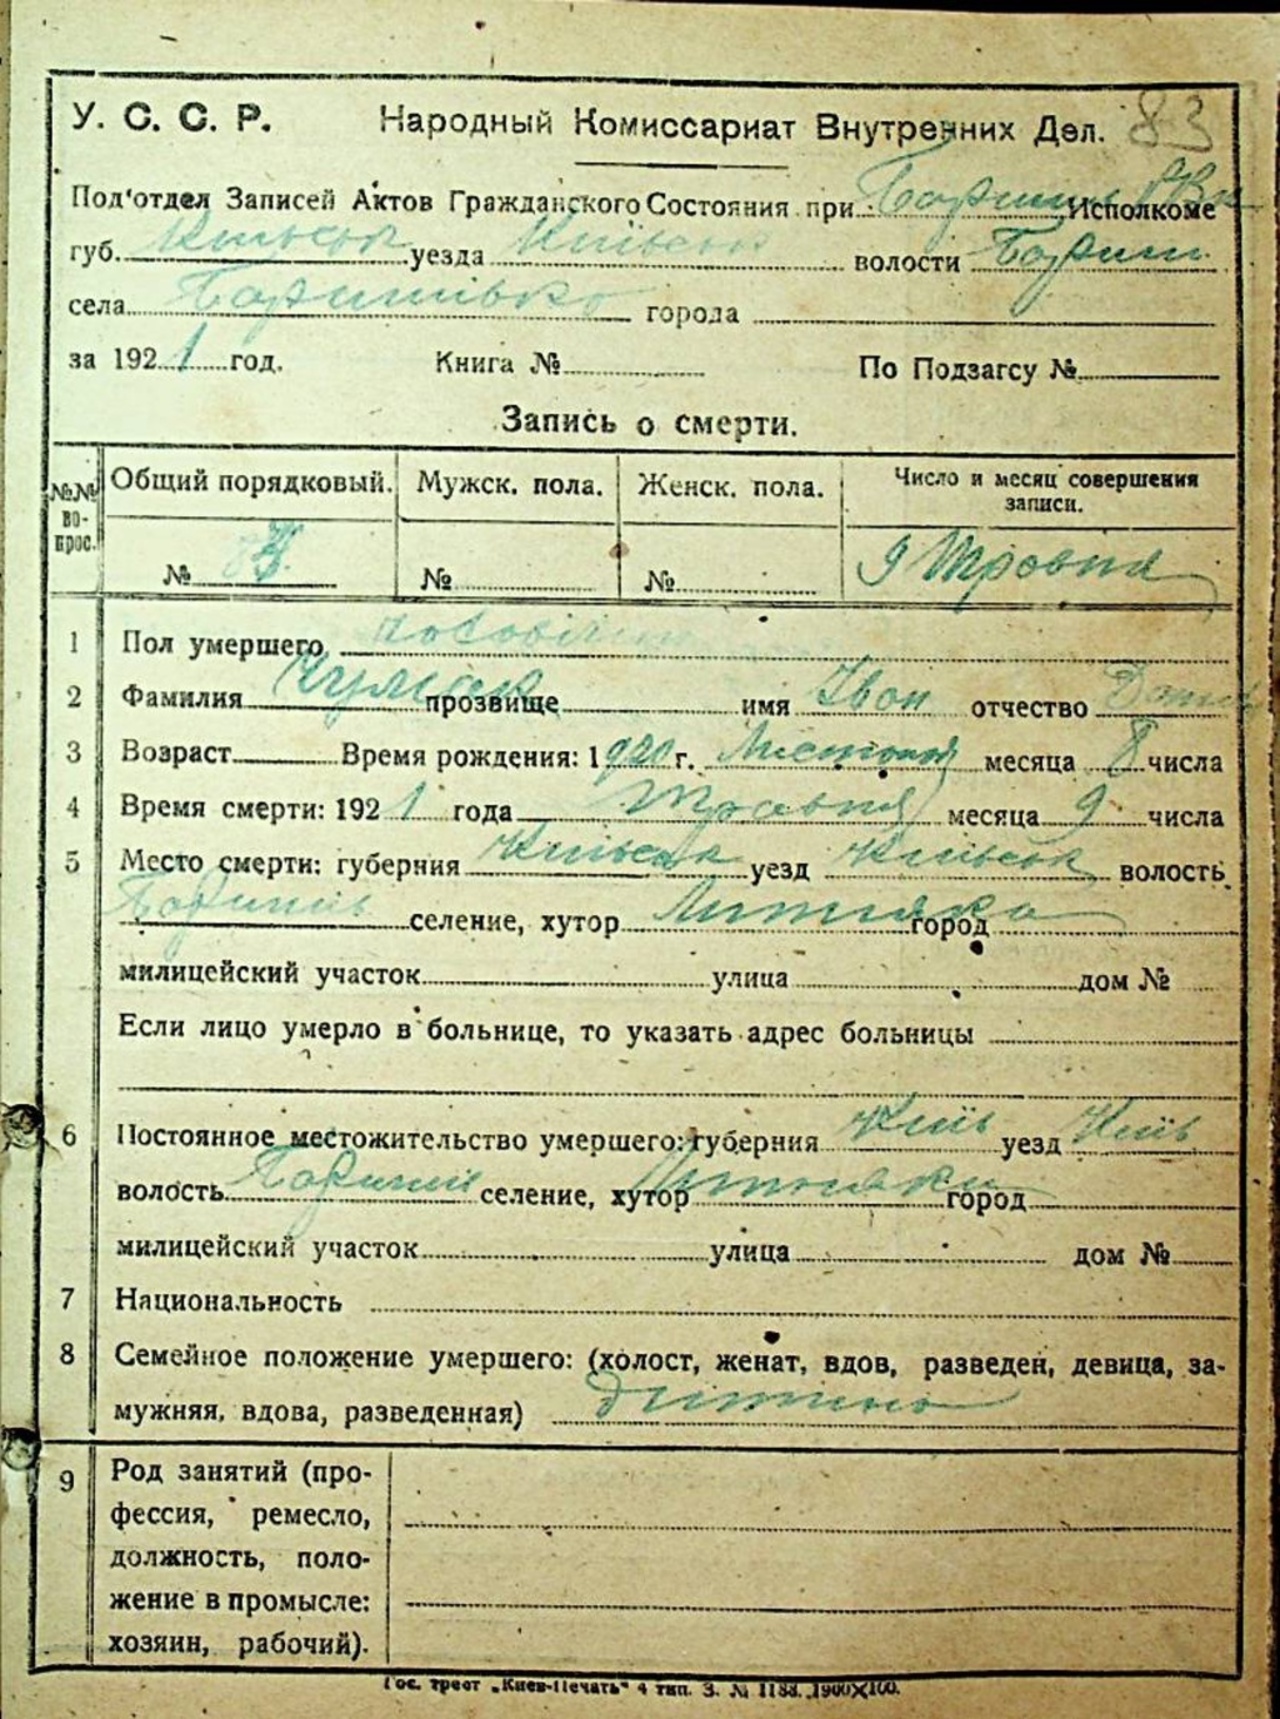 83
У. С. С. Р. Народный Комиссариат Внутренних Дел.
Под'отдел Записей Актов Гражданского Состояния при Исполкоме
губ. Київськ уезда Київськ волости Борисп
села города
за 1921 год. Книга № По Подзагсу №
Запись о смерти.
№№ вопрос. Общий порядковый. Мужск. пола. Женск. пола. Число и месяц совершения записи.
№ № № 9 Травня
1 Пол умершего
2 Фамилия Чумак прозвище имя Іван отчество
3 Возраст Время рождения: 1920 г. Листопад месяца 8 числа
4 Время смерти: 1921 года Травня месяца 9 числа
5 Место смерти: губерния Київська уезд Київськ волость
Бориспіль селение, хутор город
милицейский участок улица дом №
Если лицо умерло в больнице, то указать адрес больницы
6 Постоянное местожительство умершего: губерния Київ уезд Київ
волость селение, хутор город
милицейский участок улица дом №
7 Национальность
8 Семейное положение умершего: (холост, женат, вдов, разведен, девица, за-
мужняя, вдова, разведенная) дитина
9 Род занятий (про-
фессия, ремесло,
должность, поло-
жение в промысле:
хозяин, рабочий).
Гос. трест „Киев-Печать“ 4 тип. З. № 1188. 1900X100.